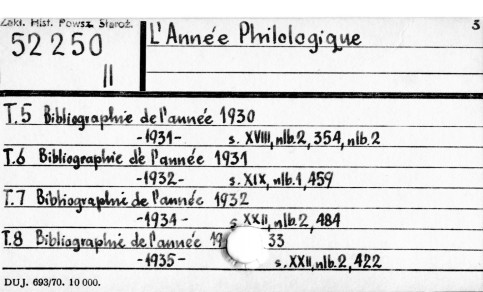 Zakł. Hist. Powsz. Staroż.
5
52 250
II
L'Année Philologique
T.5 Bibliographie de l'année 1930
-1931- s. XVIII, nlb.2, 354, nlb.2
T.6 Bibliographie de l'année 1931
-1932- s. XIX, nlb.1, 459
T.7 Bibliographie de l'année 1932
-1934- s XXII, nlb.2, 484
T.8 Bibliographie de l'année 19 33
-1935- s. XXII, nlb.2, 422
DUJ. 693/70. 10 000.